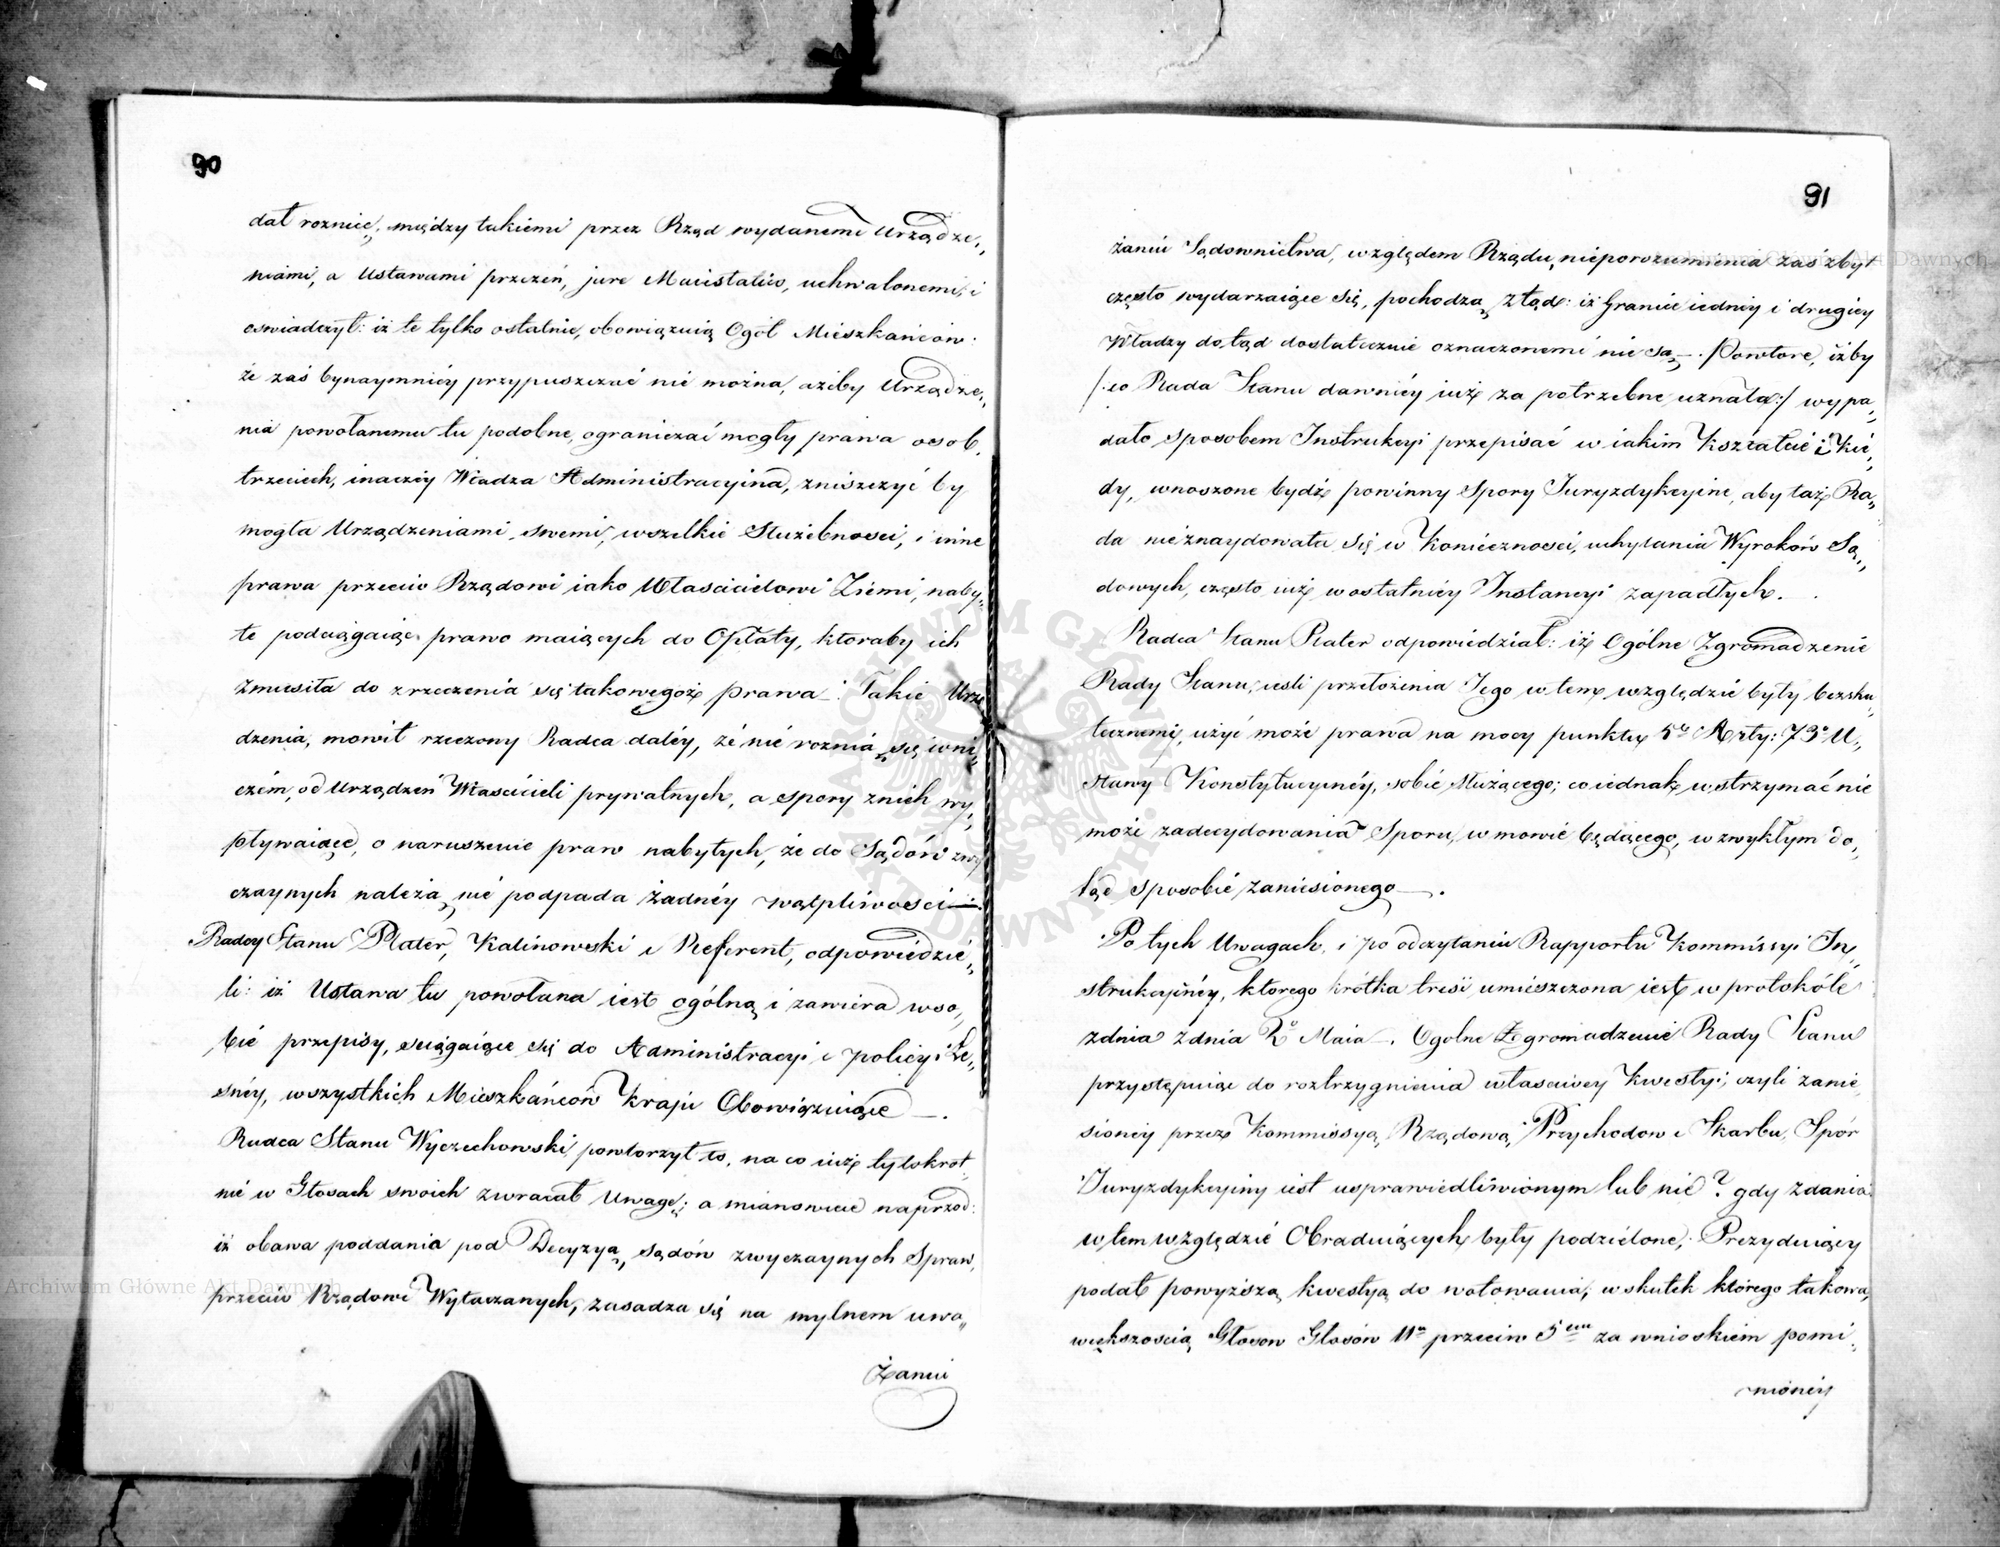 90
dał roznicę, między takiemi przez Rząd wydanemi Urządze„
niami, a Ustawami przezeń, jure Maiestatico, uchwalonemi, i
oswiadczył: iż te tylko ostatnie, obowiązuią Ogół Mieszkańców:
że zaś bynaymniéy przypuszczać nie można, ażeby Urządze„
nia powołanemu tu podobne, ograniczać mogły prawa osob
trzecich, inaczéy Władza Administracyina, zniszczyć by
mogła Urządzeniami swemi, wszelkie Służebnosci, i inne
prawa przeciw Rządowi iako Własicielowi Ziemi, naby„
te podciągaiąc prawo maiących do Opłaty, ktoraby ich
zmusiła do zrzeczenia się takowegoż prawa —. Takie Urzą
dzenia, mowił rzeczony Radca daléy, że nie roznią się w ni„
czém, od Urządzeń Włascicieli prywatnych, a spory z nich wy„
pływaiące, o naruszenie praw nabytych, że do Sądów zwy
czaynych należą, nie podpada żadnéy wątpliwosci —.
Radcy Stanu Plater, Kalinowski i Referent, odpowiedzie„
li: iż Ustawa tu powołana iest ogólną i zawiera w so„
bie przepisy, sciągaiące się do Administracyi i policyi Le„
snéy, wszystkich Mieszkańców Kraju Obowiązuiące —.
Radca Stanu Wyczechowski powtorzył to, na co iuż tylokrot„
nie w Głosach swoich zwracał Uwagę; a mianowicie naprzod:
iż obawa poddania pod Decyzyą, sądów zwyczaynych Spraw,
przeciw Rządowi Wytaczanych, zasadza się na mylnem uwa„
żaniu
91
żaniu Sądownictwa, względem Rządu, nieporozumienia zaś zbyt
często wydarzaiące się, pochodzą ztąd: iż Granice iednéy i drugiéy
Władzy dotąd dostatecznie oznaczonemi nie są —. Powtore, iżby
/:co Rada Stanu dawniéy iuż za potrzebne uznała:/ wypa„
dało sposobem Instrukcyi przepisać w iakim Kształcie i Kie„
dy, wnoszone bydź powinny Spory Juryzdykcyine, aby taż Ra„
da nie znaydowała się w Koniecznosci, uchylania Wyroków Są„
dowych, często iuż w ostatniéy Instancyi zapadłych.
Radca Stanu Plater odpowiedział: iż Ogólne Zgromadzenie
Rady Stanu, iesli przełożenia Jego w tem względzie były bezsku„
tecznemi, użyć może prawa na mocy punktu 5º Arty: 73º U„
stawy Konstytucyinéy, sobie służącego; co iednak wstrzymać nie
może zadecydowania Sporu, w mowie będącego, w zwykłym do„
tąd sposobie zaniesionego —.
Po tych Uwagach, i po odczytaniu Rapportu Kommissyi In„
strukcyinéy, ktorego krótka tresć umieszczona iest w protokóle
z dnia z dnia 2º Maia —. Ogolne Zgromadzenie Rady Stanu
przystępuiąc do roztrzygnienia własciwey Kwestyi, czyli zanie„
sioney przez Kommissyą Rządową Przychodow i Skarbu, Spór
Juryzdykcyiny iest usprawiedliwionym lub nie? gdy zdania
w tem względzie Obraduiących były podzielone, Prezyduiący
podał powyższą kwestyą do wotowania, w skutek którego takowa,
większoscią Głosow Głosów 11u przeciw 5ciu za wnioskiem pomi„
nionéy